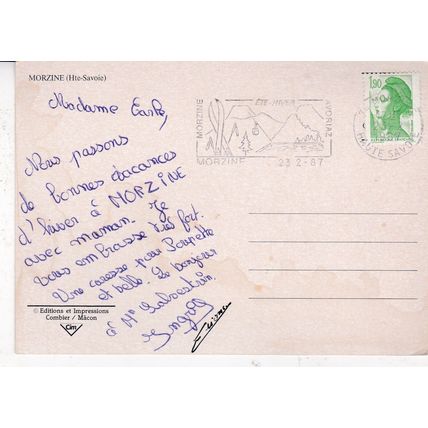 MORZINE (Hte-Savoie)
Madame
Nous passons
de bonnes vacances
d'hiver à MORZINE
avec maman. Je
vous embrasse très fort.
Une caresse pour Poupette
et belle. Le bonjour
à Mr
Ingrid
© Editions et Impressions
Combier / Mâcon
Cim
MORZINE
ÉTÉ-HIVER
AVORIAZ
MORZINE
23-2-87
HAUTE SAVOIE
1,90
REPUBLIQUE FRANÇAISE